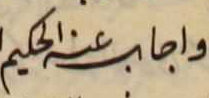 واجاب عنه الحكيم